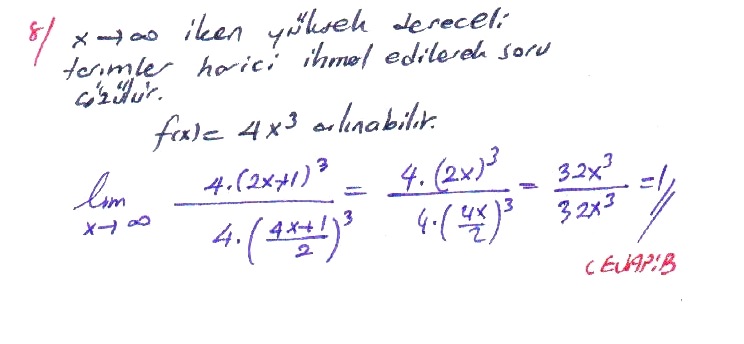 8/ x→∞ iken yüksek dereceli
terimler harici ihmal edilerek soru
çözülür.
f(x) = 4x³ alınabilir.
lim x→∞ 4.(2x+1)³ / 4.((4x+1)/2)³ = 4.(2x)³ / 4.(4x/2)³ = 32x³ / 32x³ = 1
CEVAP:B